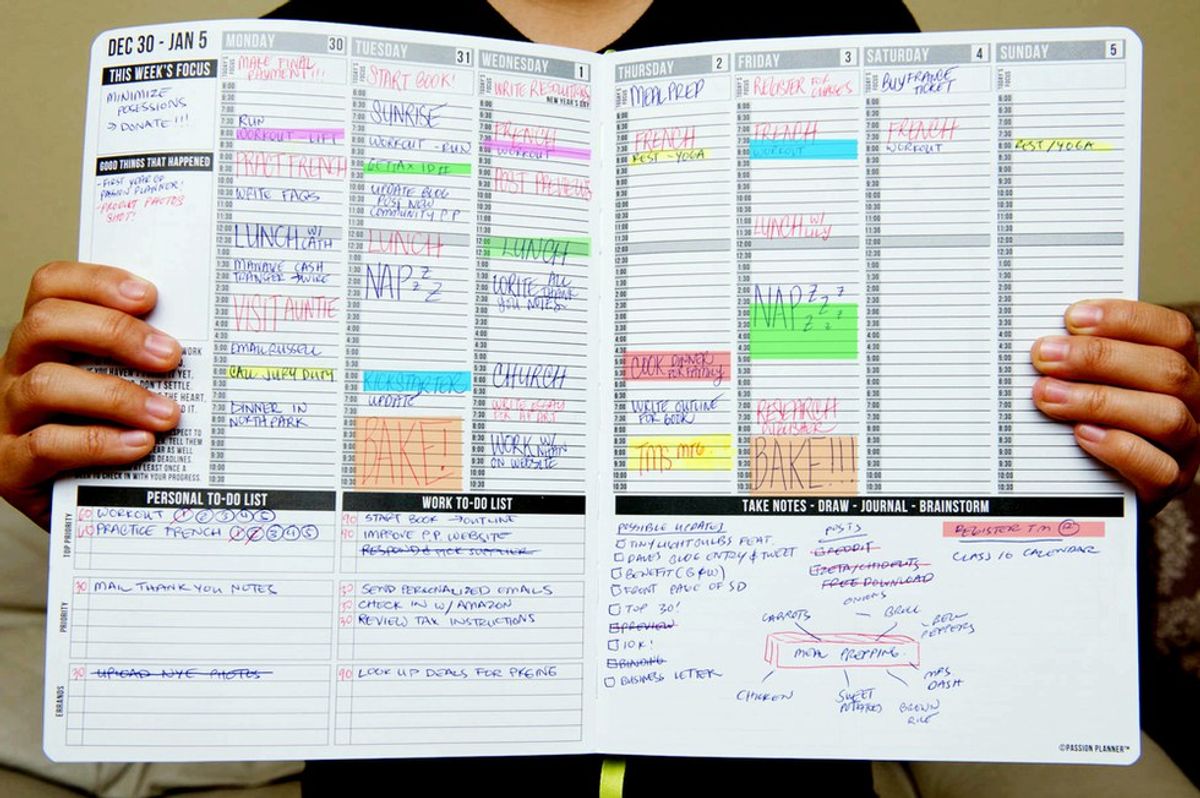 DEC 30 - JAN 5
THIS WEEK'S FOCUS
MINIMIZE
POSESSIONS
→ DONATE!!!
GOOD THINGS THAT HAPPENED
- FIRST YEAR OF
PASSION PLANNER!
- PRODUCT PHOTOS
SHOT!
WORK
YET.
DON'T SETTLE.
THE HEART,
TELL THEM
DEADLINES.
AT LEAST ONCE A
TO CHECK IN WITH YOUR PROGRESS.
MONDAY 30
TODAY'S FOCUS
MAKE FINAL
PAYMENT!!!
RUN
WORKOUT - LIFT
PRACT FRENCH
WRITE FAQS
LUNCH W/
CATH
MANAGE CASH
TRANSFER → WIRE
VISIT AUNTIE
EMAIL RUSSELL
CALL JURY DUTY
DINNER IN
NORTH PARK
TUESDAY 31
TODAY'S FOCUS
START BOOK!
SUNRISE
WORKOUT - RUN
GET TAX ID #
UPDATE BLOG
POST NEW
COMMUNITY P.P
LUNCH
NAP z z z
KICKSTARTER
UPDATE
BAKE!
WEDNESDAY 1
TODAY'S FOCUS
WRITE RESOLUTIONS
NEW YEAR'S DAY
FRENCH
WORKOUT
POST PREVIEWS
LUNCH
WRITE ALL
THANK
YOU NOTES
CHURCH
WRITE ESSAY
FOR AP ART
WORK W/
NHAN
ON WEBSITE
THURSDAY 2
TODAY'S FOCUS
MEAL PREP
FRENCH
REST - YOGA
COOK DINNER
FOR FAMILY
WRITE OUTLINE
FOR BOOK
TMS MTG.
FRIDAY 3
TODAY'S FOCUS
REGISTER FOR
CLASSES
FRENCH
WORKOUT
LUNCH W/
LILY
NAP z z z z z
RESEARCH
BAKE!!!
SATURDAY 4
TODAY'S FOCUS
BUY FRANCE
TICKET
FRENCH
WORKOUT
SUNDAY 5
TODAY'S FOCUS
REST / YOGA
PERSONAL TO-DO LIST
TOP PRIORITY
60 WORKOUT 1 2 3 4 5
60 PRACTICE FRENCH 1 2 3 4 5
PRIORITY
30 MAIL THANK YOU NOTES
ERRANDS
30 UPLOAD NYE PHOTOS
WORK TO-DO LIST
90 START BOOK → OUTLINE
90 IMPROVE P.P. WEBSITE
RESPOND & PICK SUPPLIER
30 SEND PERSONALIZED EMAILS
30 CHECK IN W/ AMAZON
30 REVIEW TAX INSTRUCTIONS
90 LOOK UP DEALS FOR PKGING
TAKE NOTES - DRAW - JOURNAL - BRAINSTORM
POSSIBLE UPDATES
TINY LIGHTBULBS FEAT.
DAVES BLOG ENTRY & TWEET
BENEFIT (B&W)
FRONT PAGE OF SD
TOP 30!
PREVIEW
10K!
BINDING
BUSINESS LETTER
POSTS
REDDIT
FREE DOWNLOAD
REGISTER TM ®
CLASS 16 CALENDAR
ONIONS
CARROTS
BROLL
BELL
PEPPERS
MEAL PREPPING
MRS
DASH
CHICKEN
SWEET
POTATOES
BROWN
RICE
©PASSION PLANNER™